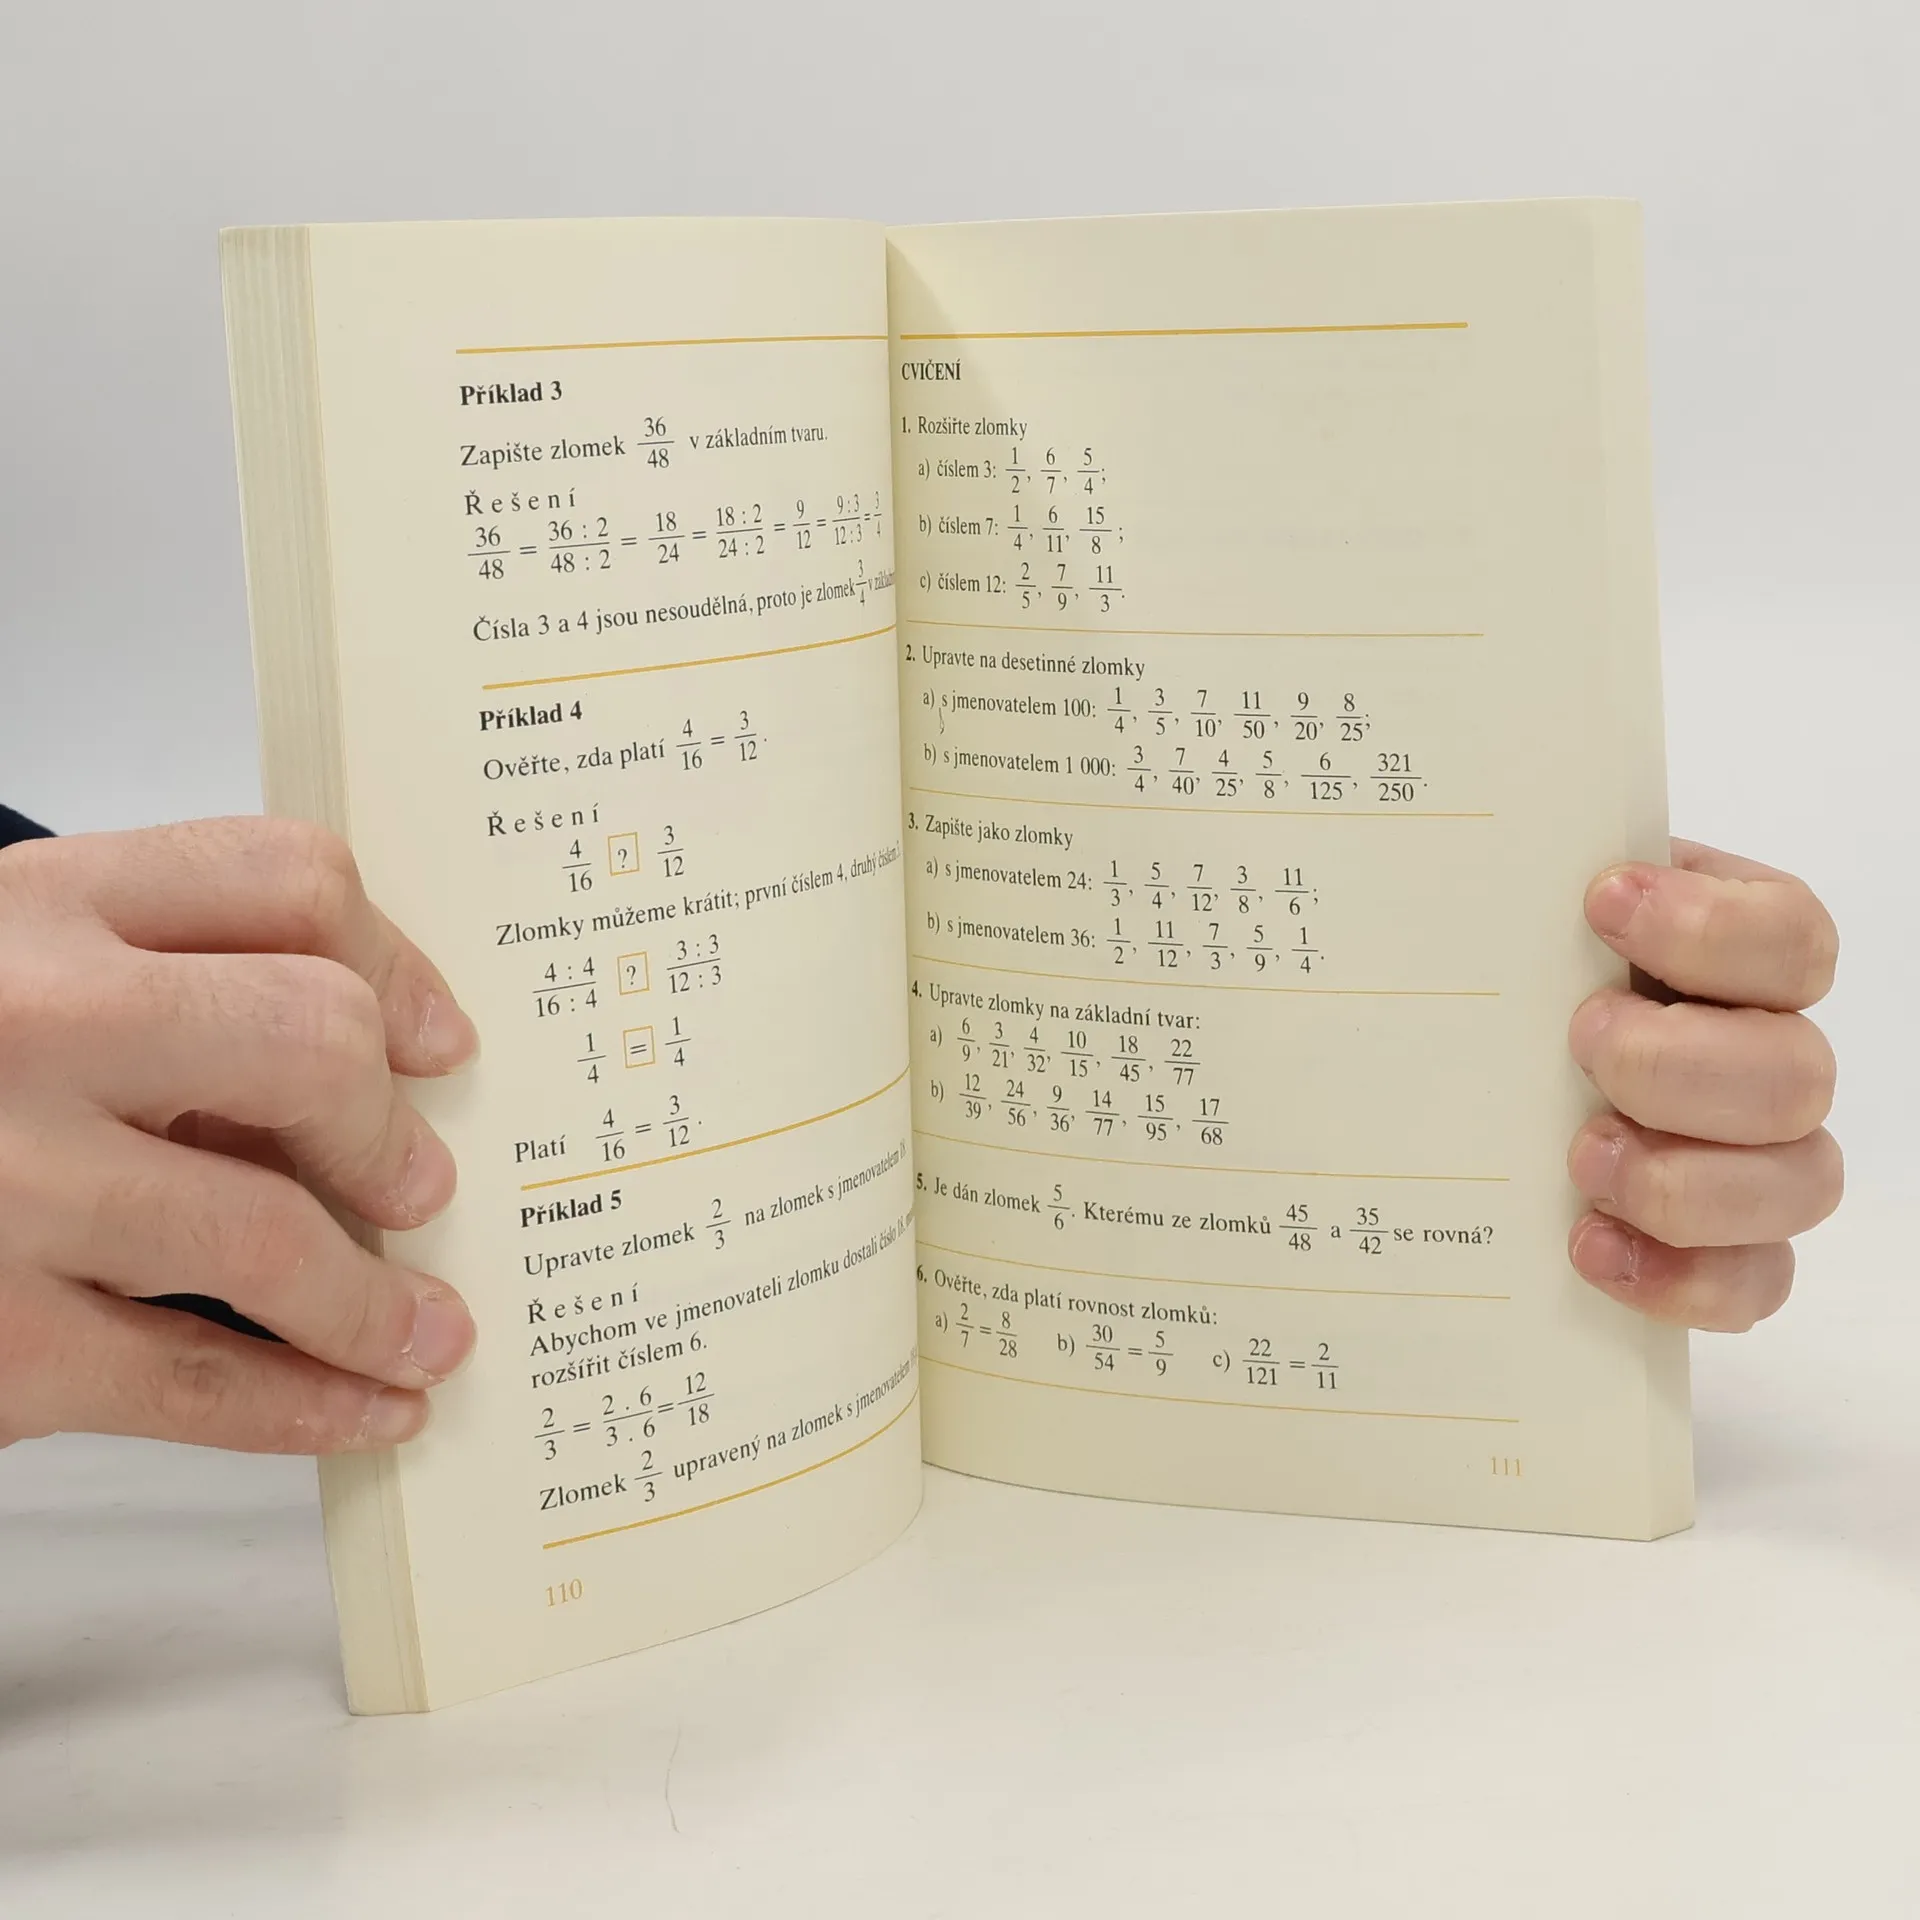 Příklad 3
Zapište zlomek 36/48 v základním tvaru.
Řešení
36/48 = 36 : 2/48 : 2 = 18/24 = 18 : 2/24 : 2 = 9/12 = 9 : 3/12 : 3 = 3/4
Čísla 3 a 4 jsou nesoudělná, proto je zlomek 3/4 v
Příklad 4
Ověřte, zda platí 4/16 = 3/12.
Řešení
4/16 ? 3/12
Zlomky můžeme krátit; první číslem 4, druhý číslem 3
4 : 4/16 : 4 ? 3 : 3/12 : 3
1/4 = 1/4
Platí 4/16 = 3/12.
Příklad 5
Upravte zlomek 2/3 na zlomek s jmenovatelem 18
Řešení
Abychom ve jmenovateli zlomku dostali číslo 18,
rozšířit číslem 6.
2/3 = 2 . 6/3 . 6 = 12/18
Zlomek 2/3 upravený na zlomek s jmenovatelem
110
CVIČENÍ
1. Rozšiřte zlomky
a) číslem 3: 1/2, 6/7, 5/4;
b) číslem 7: 1/4, 6/11, 15/8;
c) číslem 12: 2/5, 7/9, 11/3.
2. Upravte na desetinné zlomky
a) s jmenovatelem 100: 1/4, 3/5, 7/10, 11/50, 9/20, 8/25;
b) s jmenovatelem 1 000: 3/4, 7/40, 4/25, 5/8, 6/125, 321/250.
3. Zapište jako zlomky
a) s jmenovatelem 24: 1/3, 5/4, 7/12, 3/8, 11/6;
b) s jmenovatelem 36: 1/2, 11/12, 7/3, 5/9, 1/4.
4. Upravte zlomky na základní tvar:
a) 6/9, 3/21, 4/32, 10/15, 18/45, 22/77
b) 12/39, 24/56, 9/36, 14/77, 15/95, 17/68
5. Je dán zlomek 5/6. Kterému ze zlomků 45/48 a 35/42 se rovná?
6. Ověřte, zda platí rovnost zlomků:
a) 2/7 = 8/28 b) 30/54 = 5/9 c) 22/121 = 2/11
111